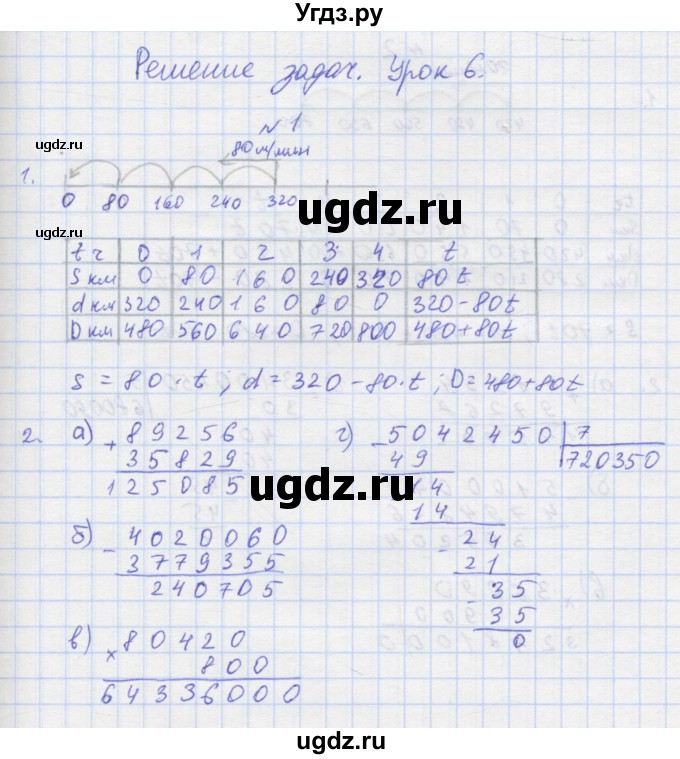 Угдз.ру
Решение задач. Урок 6.
ugdz.ru
ugdz.ru
№1
80 м/мин
1.
0 80 160 240 320
ugdz.ru
t ч 0 1 2 3 4 t
S км 0 80 160 240 320 80t
d км 320 240 160 80 0 320-80t
D км 480 560 640 720 800 480+80t
s = 80 · t ; d = 320 - 80 · t ; D = 480+80t
2. а) + 89256
35829
125085
г) - 5042450 | 7
49 720350
14
14
- 24
21
- 35
35
0
ugdz.ru
ugdz.ru
б) - 4020060
3779355
240705
в) × 80420
800
64336000
ugdz.ru
ugdz.ru
ugdz.ru